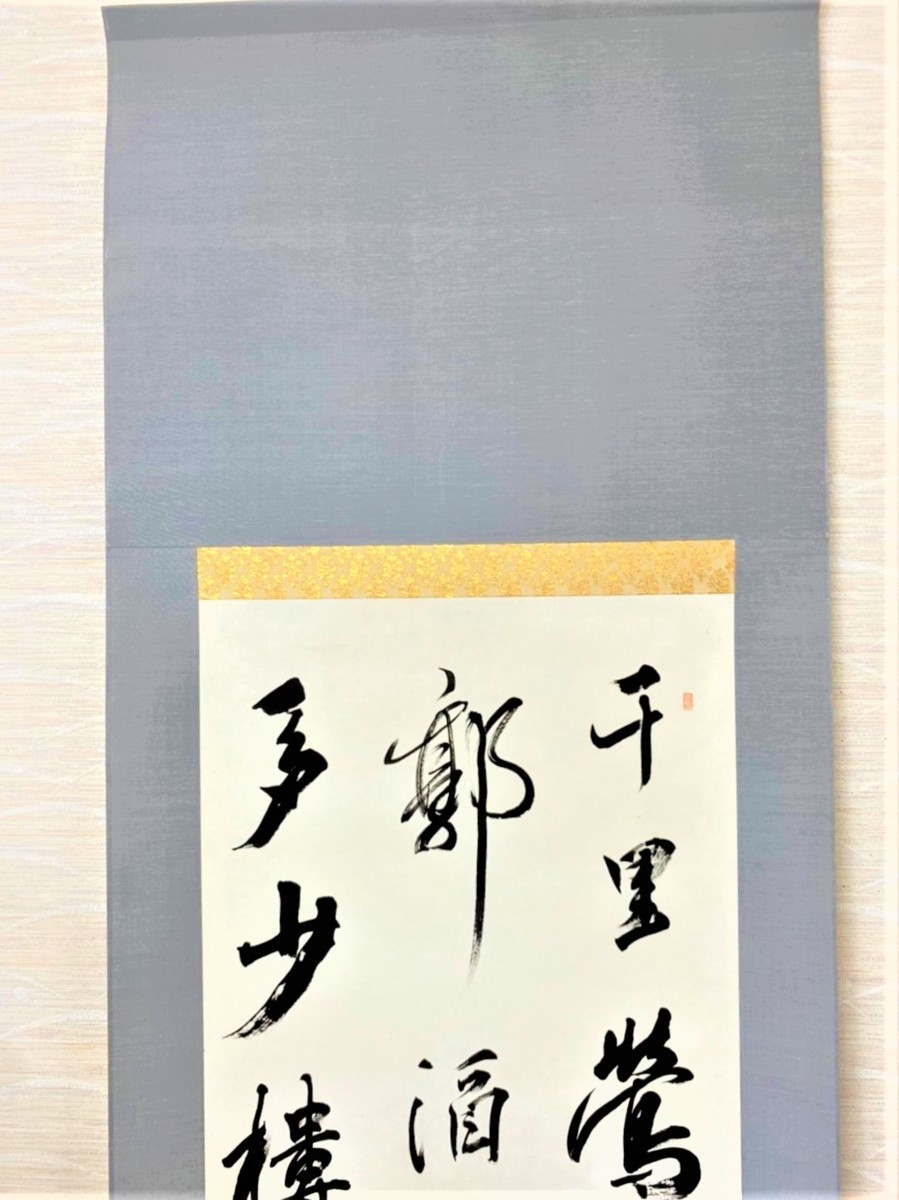 千里鶯
郭酒
多少樓